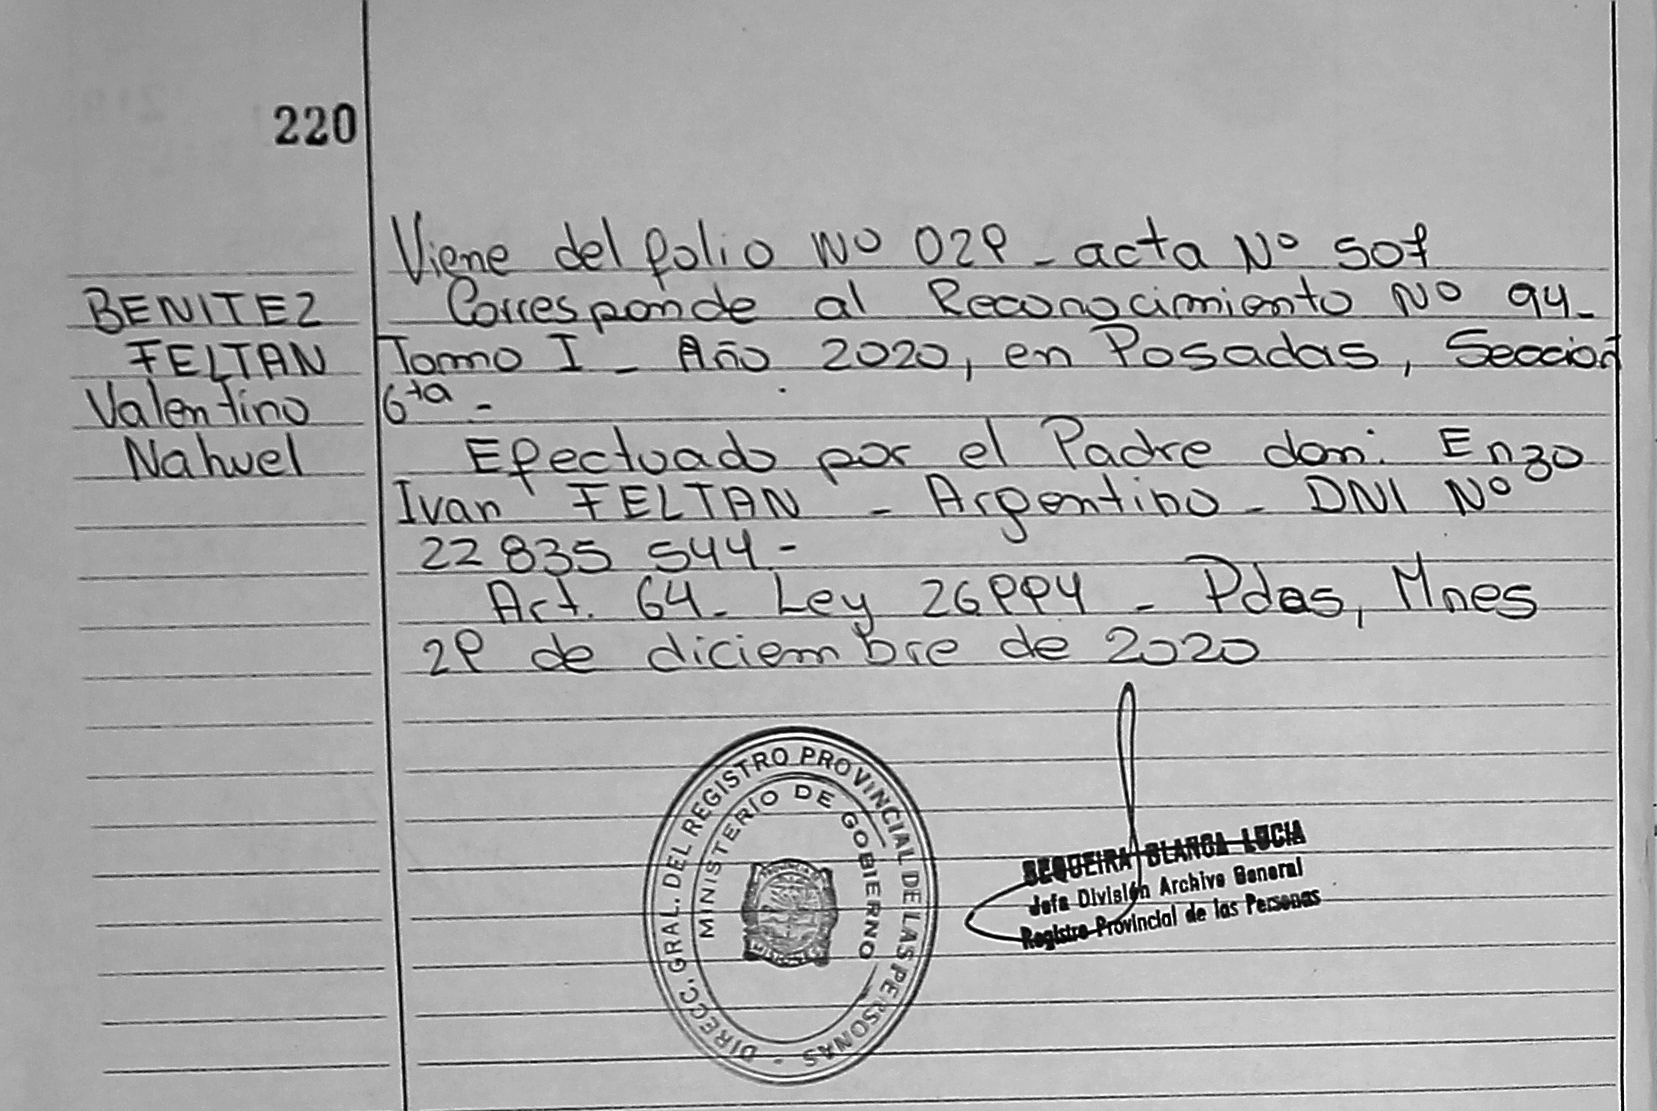 220
BENITEZ
FELTAN
Valentino
Nahuel
Viene del folio Nº 029 - acta Nº 507
Corresponde al Reconocimiento Nº 94-
Tomo I - Año 2020, en Posadas, Sección
6ta -
Efectuado por el Padre don: Enzo
Ivan FELTAN - Argentino - DNI Nº
22 835 544.-
Art. 64- Ley 26994 - Pdas, Mnes
29 de diciembre de 2020
DIRECC. GRAL. DEL REGISTRO PROVINCIAL DE LAS PERSONAS -
MINISTERIO DE GOBIERNO
SEQUEIRA BLANCA LUCIA
Jefa División Archivo General
Registro Provincial de las Personas